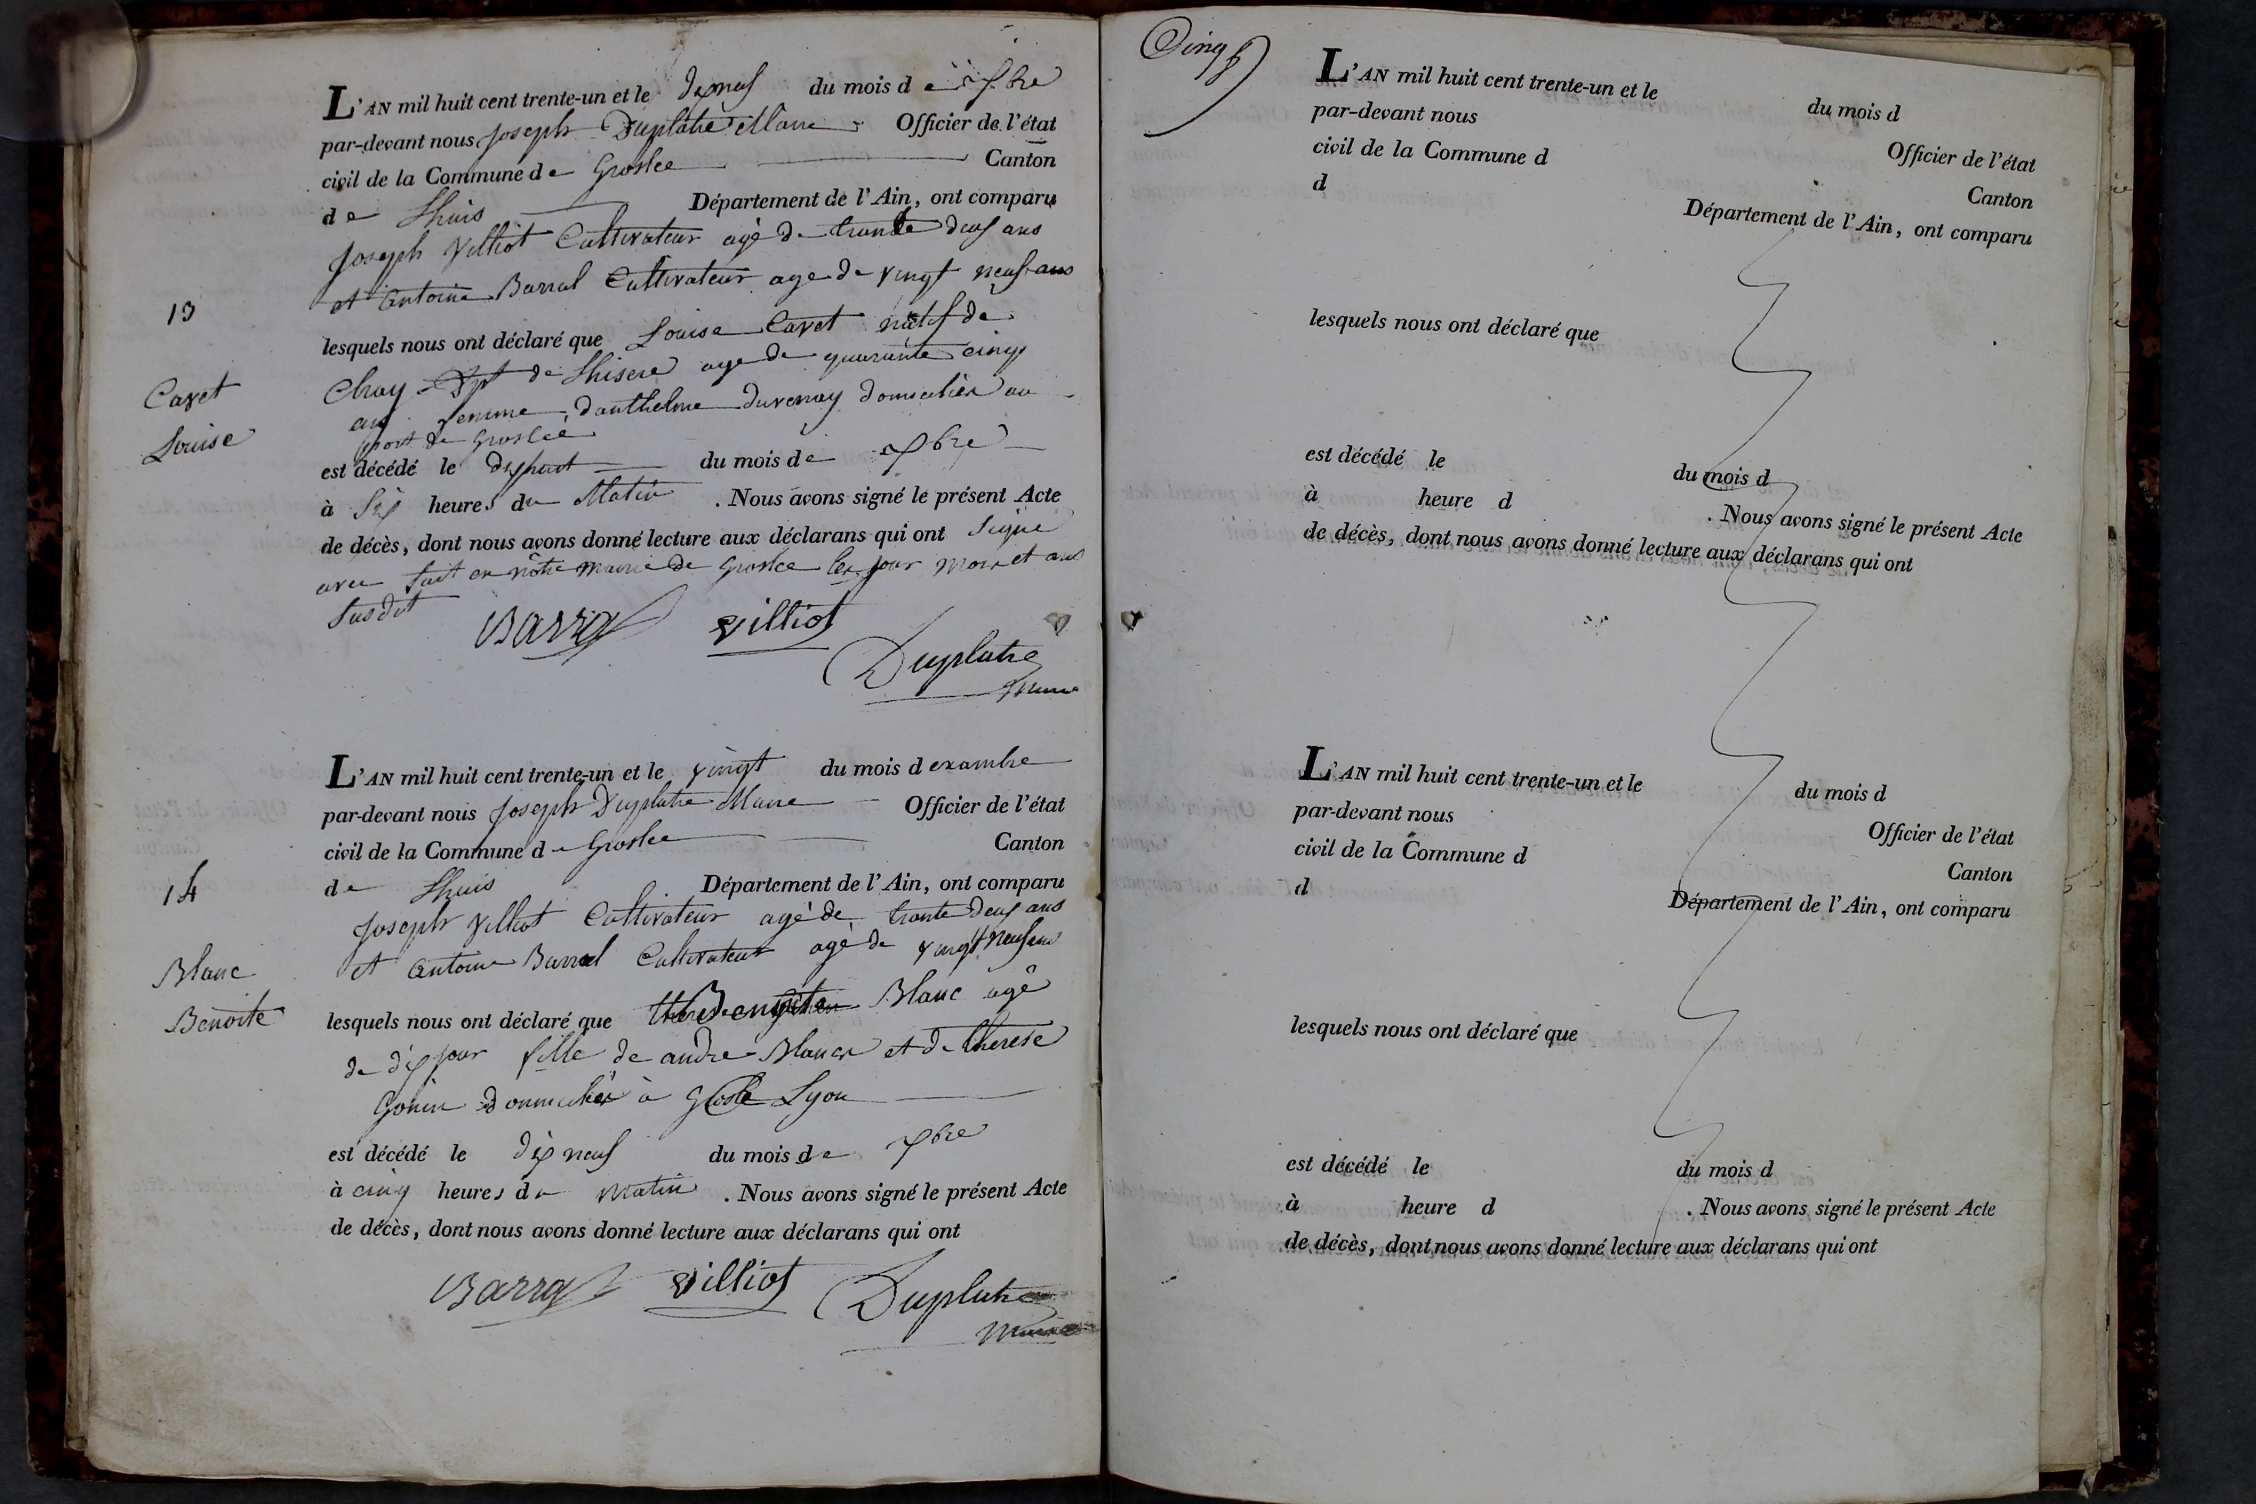 L'AN mil huit cent trente-un et le dixneuf du mois de xbre
par-devant nous Joseph Duplatre Maire Officier de l'état
civil de la Commune de Groslee Canton
de Lhuis Département de l'Ain, ont comparu
Joseph Villiot Cultivateur agé de trente deux ans
et antoine Barral Cultivateur age de vingt neuf ans
13
lesquels nous ont déclaré que Louise Cavet natif de
Cavet
Louise
Chay Dpt de Lhisere age de quarante cinq
ans femme danthelme duvernay domicilièr au
port de Groslée
est décédé le dixhuit du mois de xbre
à Six heures du Matin . Nous avons signé le présent Acte
de décès, dont nous avons donné lecture aux déclarans qui ont Signé
avec fait en nôtre mairie de Groslee les jour mois et ans
Susdit
Barral Villiot
Duplatre
maire
L'AN mil huit cent trente-un et le vingt du mois dexambre
par-devant nous Joseph Duplatre Maire Officier de l'état
civil de la Commune de Groslee Canton
14
de Lhuis Département de l'Ain, ont comparu
Joseph Villiot Cultivateur agé de trente deux ans
et antoine Barral Cultivateur agé de vingt neuf ans
Blanc
Benoite
lesquels nous ont déclaré que Benoite Blanc agê
de dix jour fille de andre Blanc et de therese
Gonin domicilièr à Lyon
est décédé le dix neuf du mois de xbre
à cinq heures du matin . Nous avons signé le présent Acte
de décès, dont nous avons donné lecture aux déclarans qui ont
Barral Villiot Duplatre
maire
Cinq
L'AN mil huit cent trente-un et le du mois d
par-devant nous Officier de l'état
civil de la Commune d Canton
d Département de l'Ain, ont comparu
lesquels nous ont déclaré que
est décédé le du mois d
à heure d . Nous avons signé le présent Acte
de décès, dont nous avons donné lecture aux déclarans qui ont
L'AN mil huit cent trente-un et le du mois d
par-devant nous Officier de l'état
civil de la Commune d Canton
d Département de l'Ain, ont comparu
lesquels nous ont déclaré que
est décédé le du mois d
à heure d . Nous avons signé le présent Acte
de décès, dont nous avons donné lecture aux déclarans qui ont